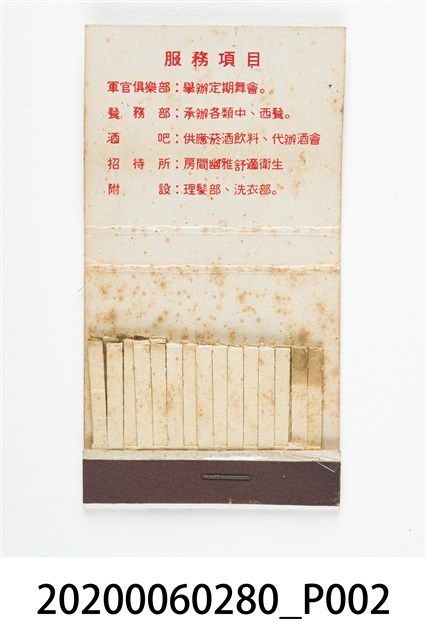 服務項目
軍官俱樂部：舉辦定期舞會。
餐務部：承辦各類中、西餐。
酒吧：供應菸酒飲料、代辦酒會
招待所：房間幽雅舒適衛生
附設：理髮部、洗衣部。
20200060280_P002